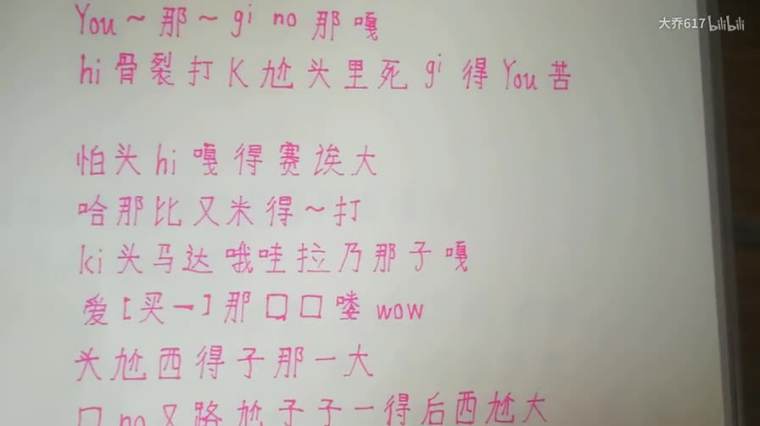 大乔617 bilibili
You～那～gi no 那嘎
hi骨裂打K尬头里死gi得You苦
怕头hi嘎得赛诶大
哈那比又米得～打
ki头马达哦哇拉乃那子嘎
爱[买一]那口口喽wow
头尬西得子那一大
口no又路尬子子一得后西尬大